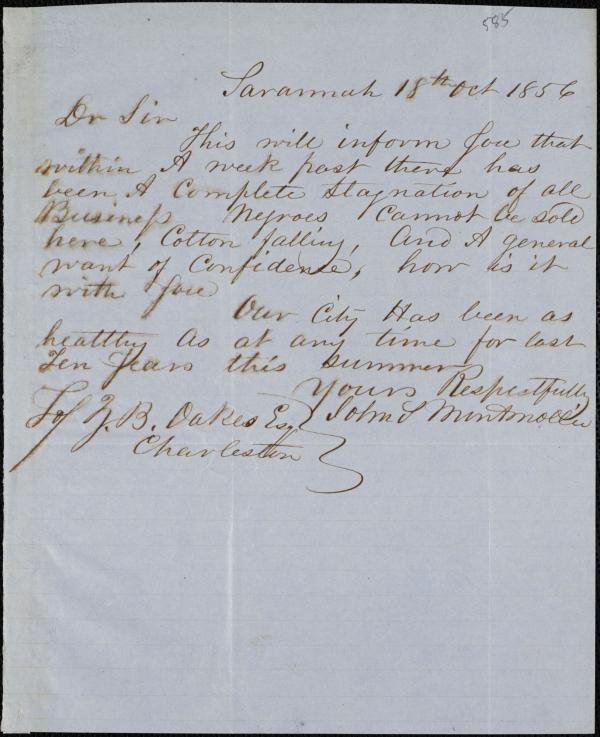 585
Savannah 18th Oct 1856
Dr Sir
This will inform you that
within A week past there has
been A Complete Stagnation of all
Business Negroes Cannot be sold
here, Cotton falling, And A general
want of Confidence, how is it
with you
Our City Has been as
healthy As at any time for last
Ten Years this summer
Yours Respectfully
To Z. B. Oakes Esq John S Montmollin
Charleston